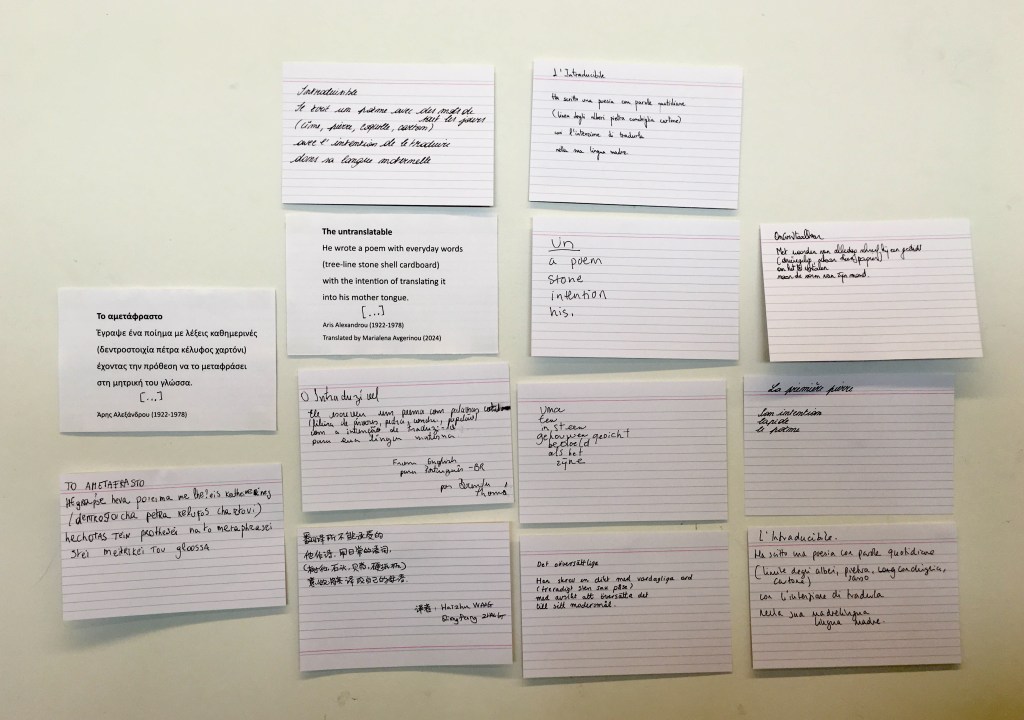 Intraduisible
Il écrit un poème avec des mots de
tous les jours
(cime, pierre, coquille, carton)
avec l'intention de le traduire
dans sa langue maternelle
L'Intraducibile
Ha scritto una poesia con parole quotidiane
(linea degli alberi pietra conchiglia cartone)
con l'intenzione di tradurla
nella sua lingua madre.
The untranslatable
He wrote a poem with everyday words
(tree-line stone shell cardboard)
with the intention of translating it
into his mother tongue.
[...]
Aris Alexandrou (1922-1978)
Translated by Marialena Avgerinou (2024)
Un
a poem
stone
intention
his.
Onomvertaalbaar
Met woorden van alledag schreef hij een gedicht
en het te vertalen
naar de vorm van zijn mond.
Το αμετάφραστο
Έγραψε ένα ποίημα με λέξεις καθημερινές
(δεντροστοιχία πέτρα κέλυφος χαρτόνι)
έχοντας την πρόθεση να το μεταφράσει
στη μητρική του γλώσσα.
[...]
Άρης Αλεξάνδρου (1922-1978)
O Intraduzível
Ele escreveu um poema com palavras
(linha de árvores, pedra, concha, papelão)
com a intenção de traduzi-lo
para sua língua materna
From English
para Português-BR
por
Uma
een
in steen
gehouwen gedicht
bedoeld
als het
zijne
La première pierre
Son intention
lapide
le poème
TO AMETAFRASTO
HEgrapse hena poieima me lekseis katheimerines
(dentrostoicha petra kelufos chartoni)
hechotas tein prothesei na to metaphrasei
stei meitrikei tou gloossa
翻译所不能承受的
他作诗，用日常的语词，
(树线，石头，贝壳，硬纸板)
意欲将其译成自己的母语.
译者: Haizhu WANG
Det oöversättliga
Han skrev en dikt med vardagliga ord
(trerad sten snäckskal papp)
med avsikt att översätta det
till sitt modersmål.
L'Intraducibile.
Ha scritto una poesia con parole quotidiane
(limite degli alberi, pietra, conchiglia,
cartone) sasso
con l'intenzione di tradurla
nella sua madrelingua
lingua madre.